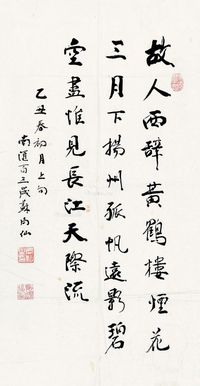 故人西辭黃鶴樓煙花
三月下揚州孤帆遠影碧
空盡惟見長江天際流
乙丑春初月上旬
南滙百三歲蘇局仙